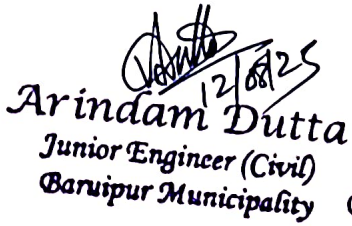 12/08/25
Arindam Dutta
Junior Engineer (Civil)
Baruipur Municipality